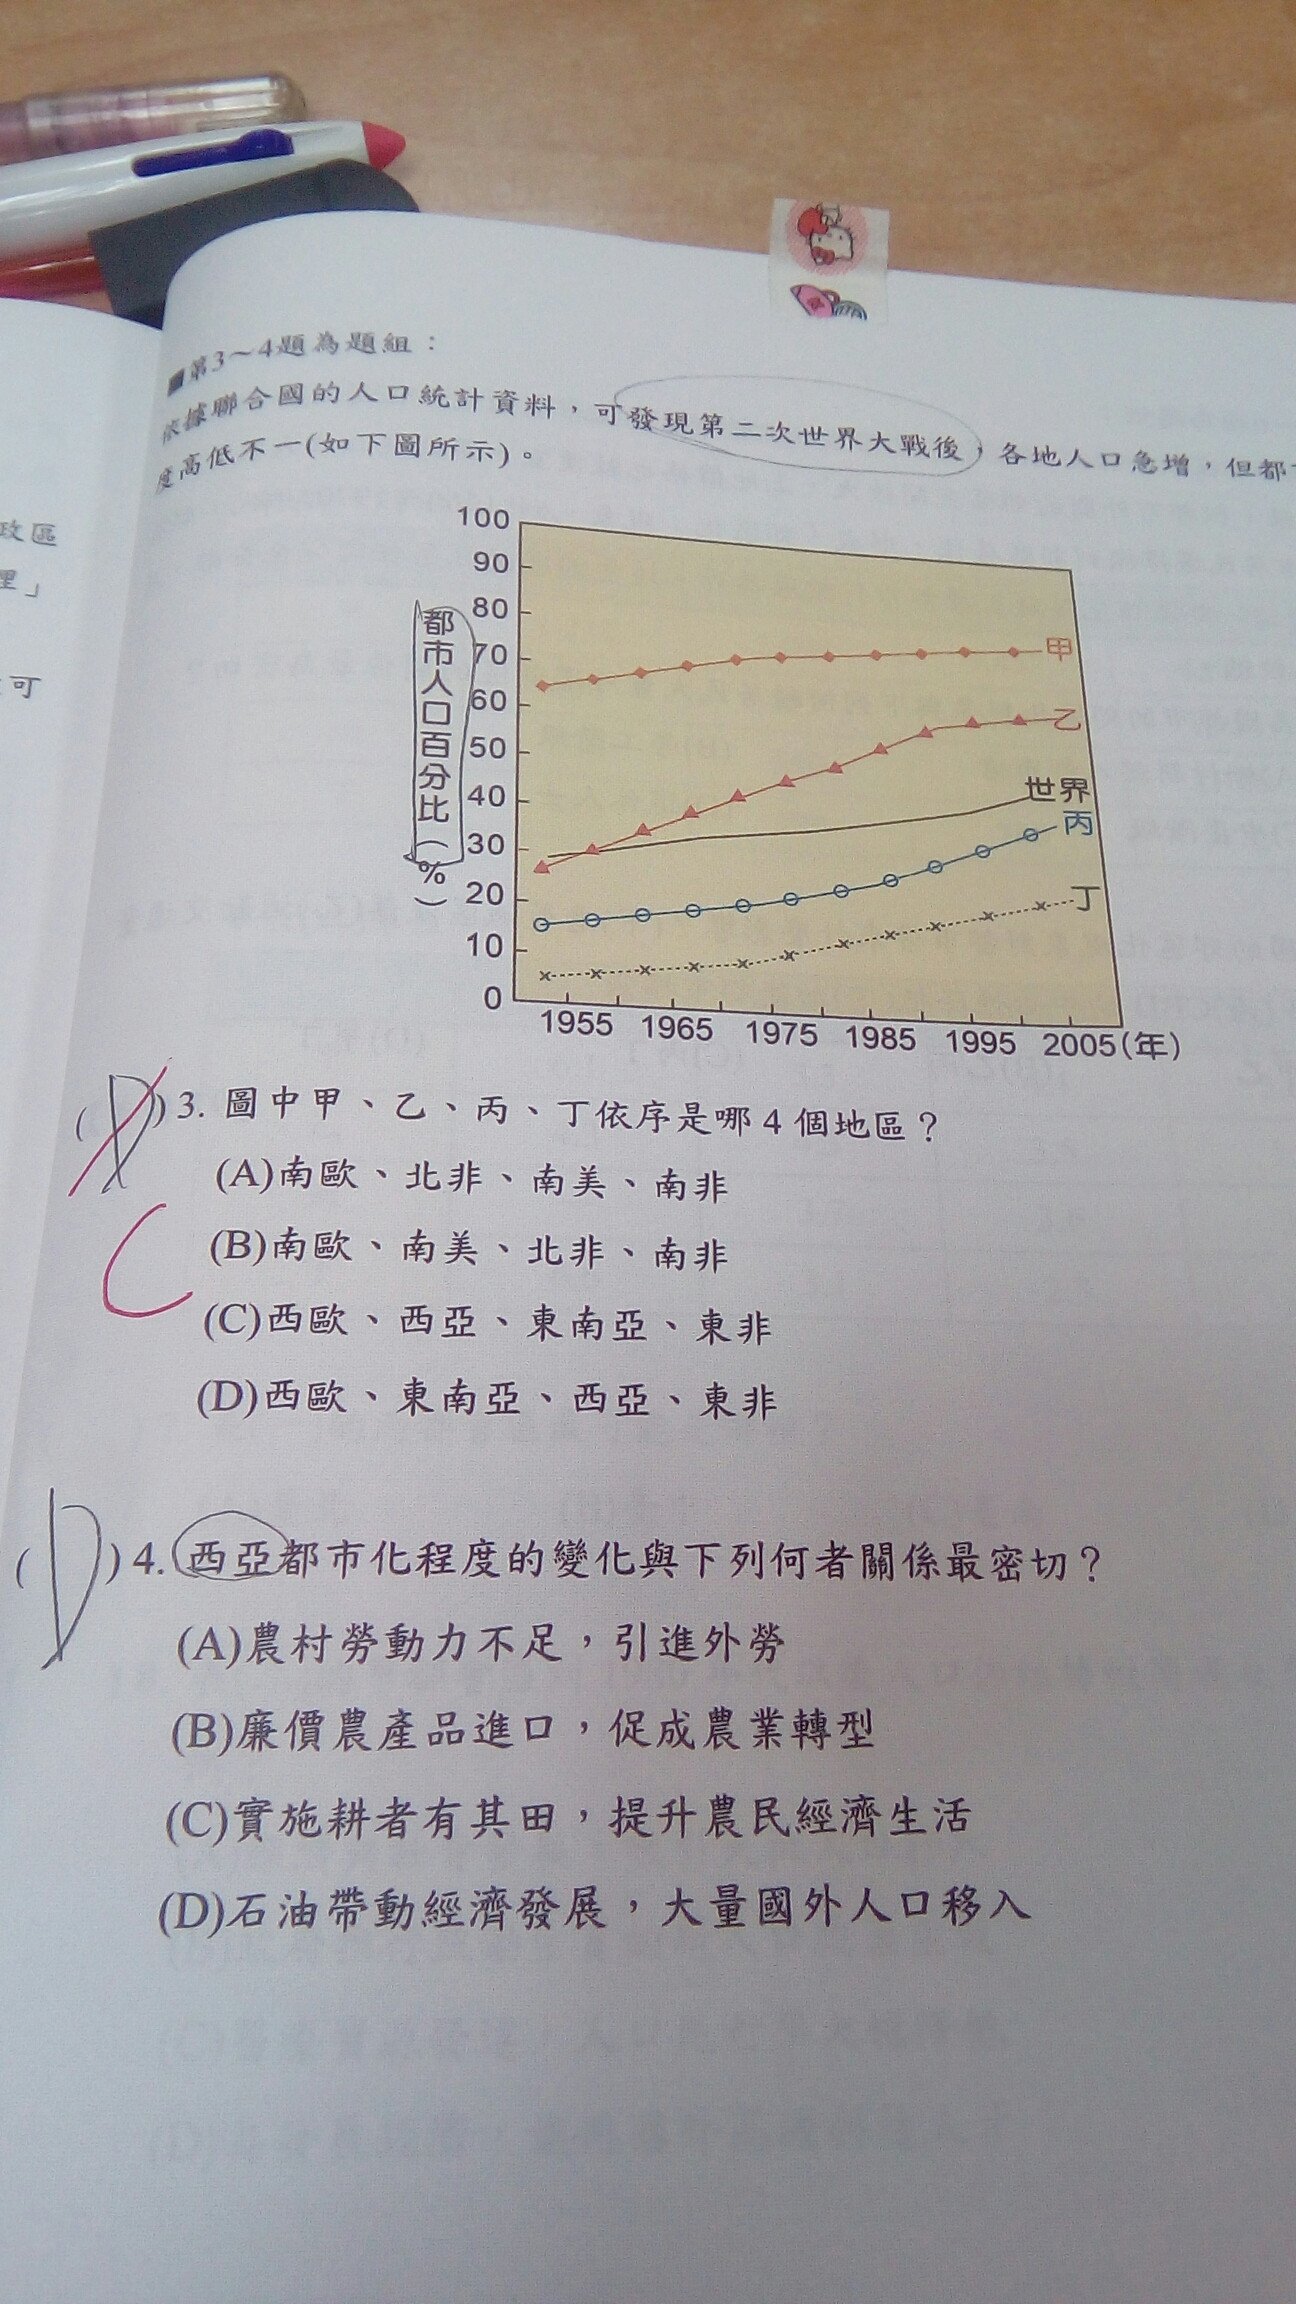 政區
理」
可
■第3～4題為題組：
依據聯合國的人口統計資料，可發現第二次世界大戰後，各地人口急增，但都
度高低不一(如下圖所示)。
都市人口百分比(%)
100
90
80
70
60
50
40
30
20
10
0
甲
乙
世界
丙
丁
1955 1965 1975 1985 1995 2005(年)
(D)3. 圖中甲、乙、丙、丁依序是哪4個地區？
(A)南歐、北非、南美、南非
(B)南歐、南美、北非、南非
C
(C)西歐、西亞、東南亞、東非
(D)西歐、東南亞、西亞、東非
(D)4. 西亞都市化程度的變化與下列何者關係最密切？
(A)農村勞動力不足，引進外勞
(B)廉價農產品進口，促成農業轉型
(C)實施耕者有其田，提升農民經濟生活
(D)石油帶動經濟發展，大量國外人口移入